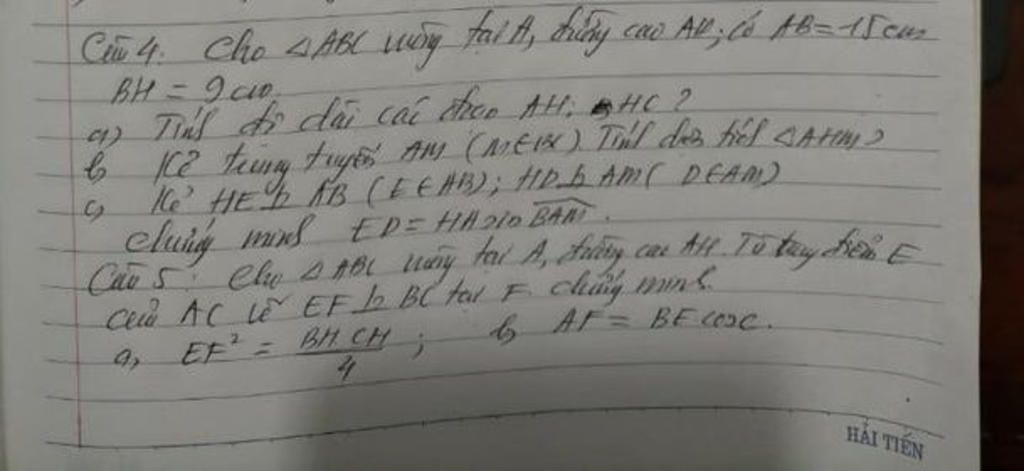 Câu 4: Cho △ABC vuông tại A, đường cao AH; có AB = 15 cm
BH = 9 cm.
a) Tính độ dài các đoạn AH; HC ?
b, Kẻ trung tuyến AM (M∈BC). Tính diện tích △AHM?
c, Kẻ HE ⊥ AB (E∈AB); HD ⊥ AM (D∈AM)
chứng minh ED = HA sin BAM.
Câu 5: Cho △ABC vuông tại A, đường cao AH. Từ trung điểm E
của AC kẻ EF ⊥ BC tại F. chứng minh.
a, EF² = BH.CH/4 ; b, AF = BE cosC.
HẢI TIẾN